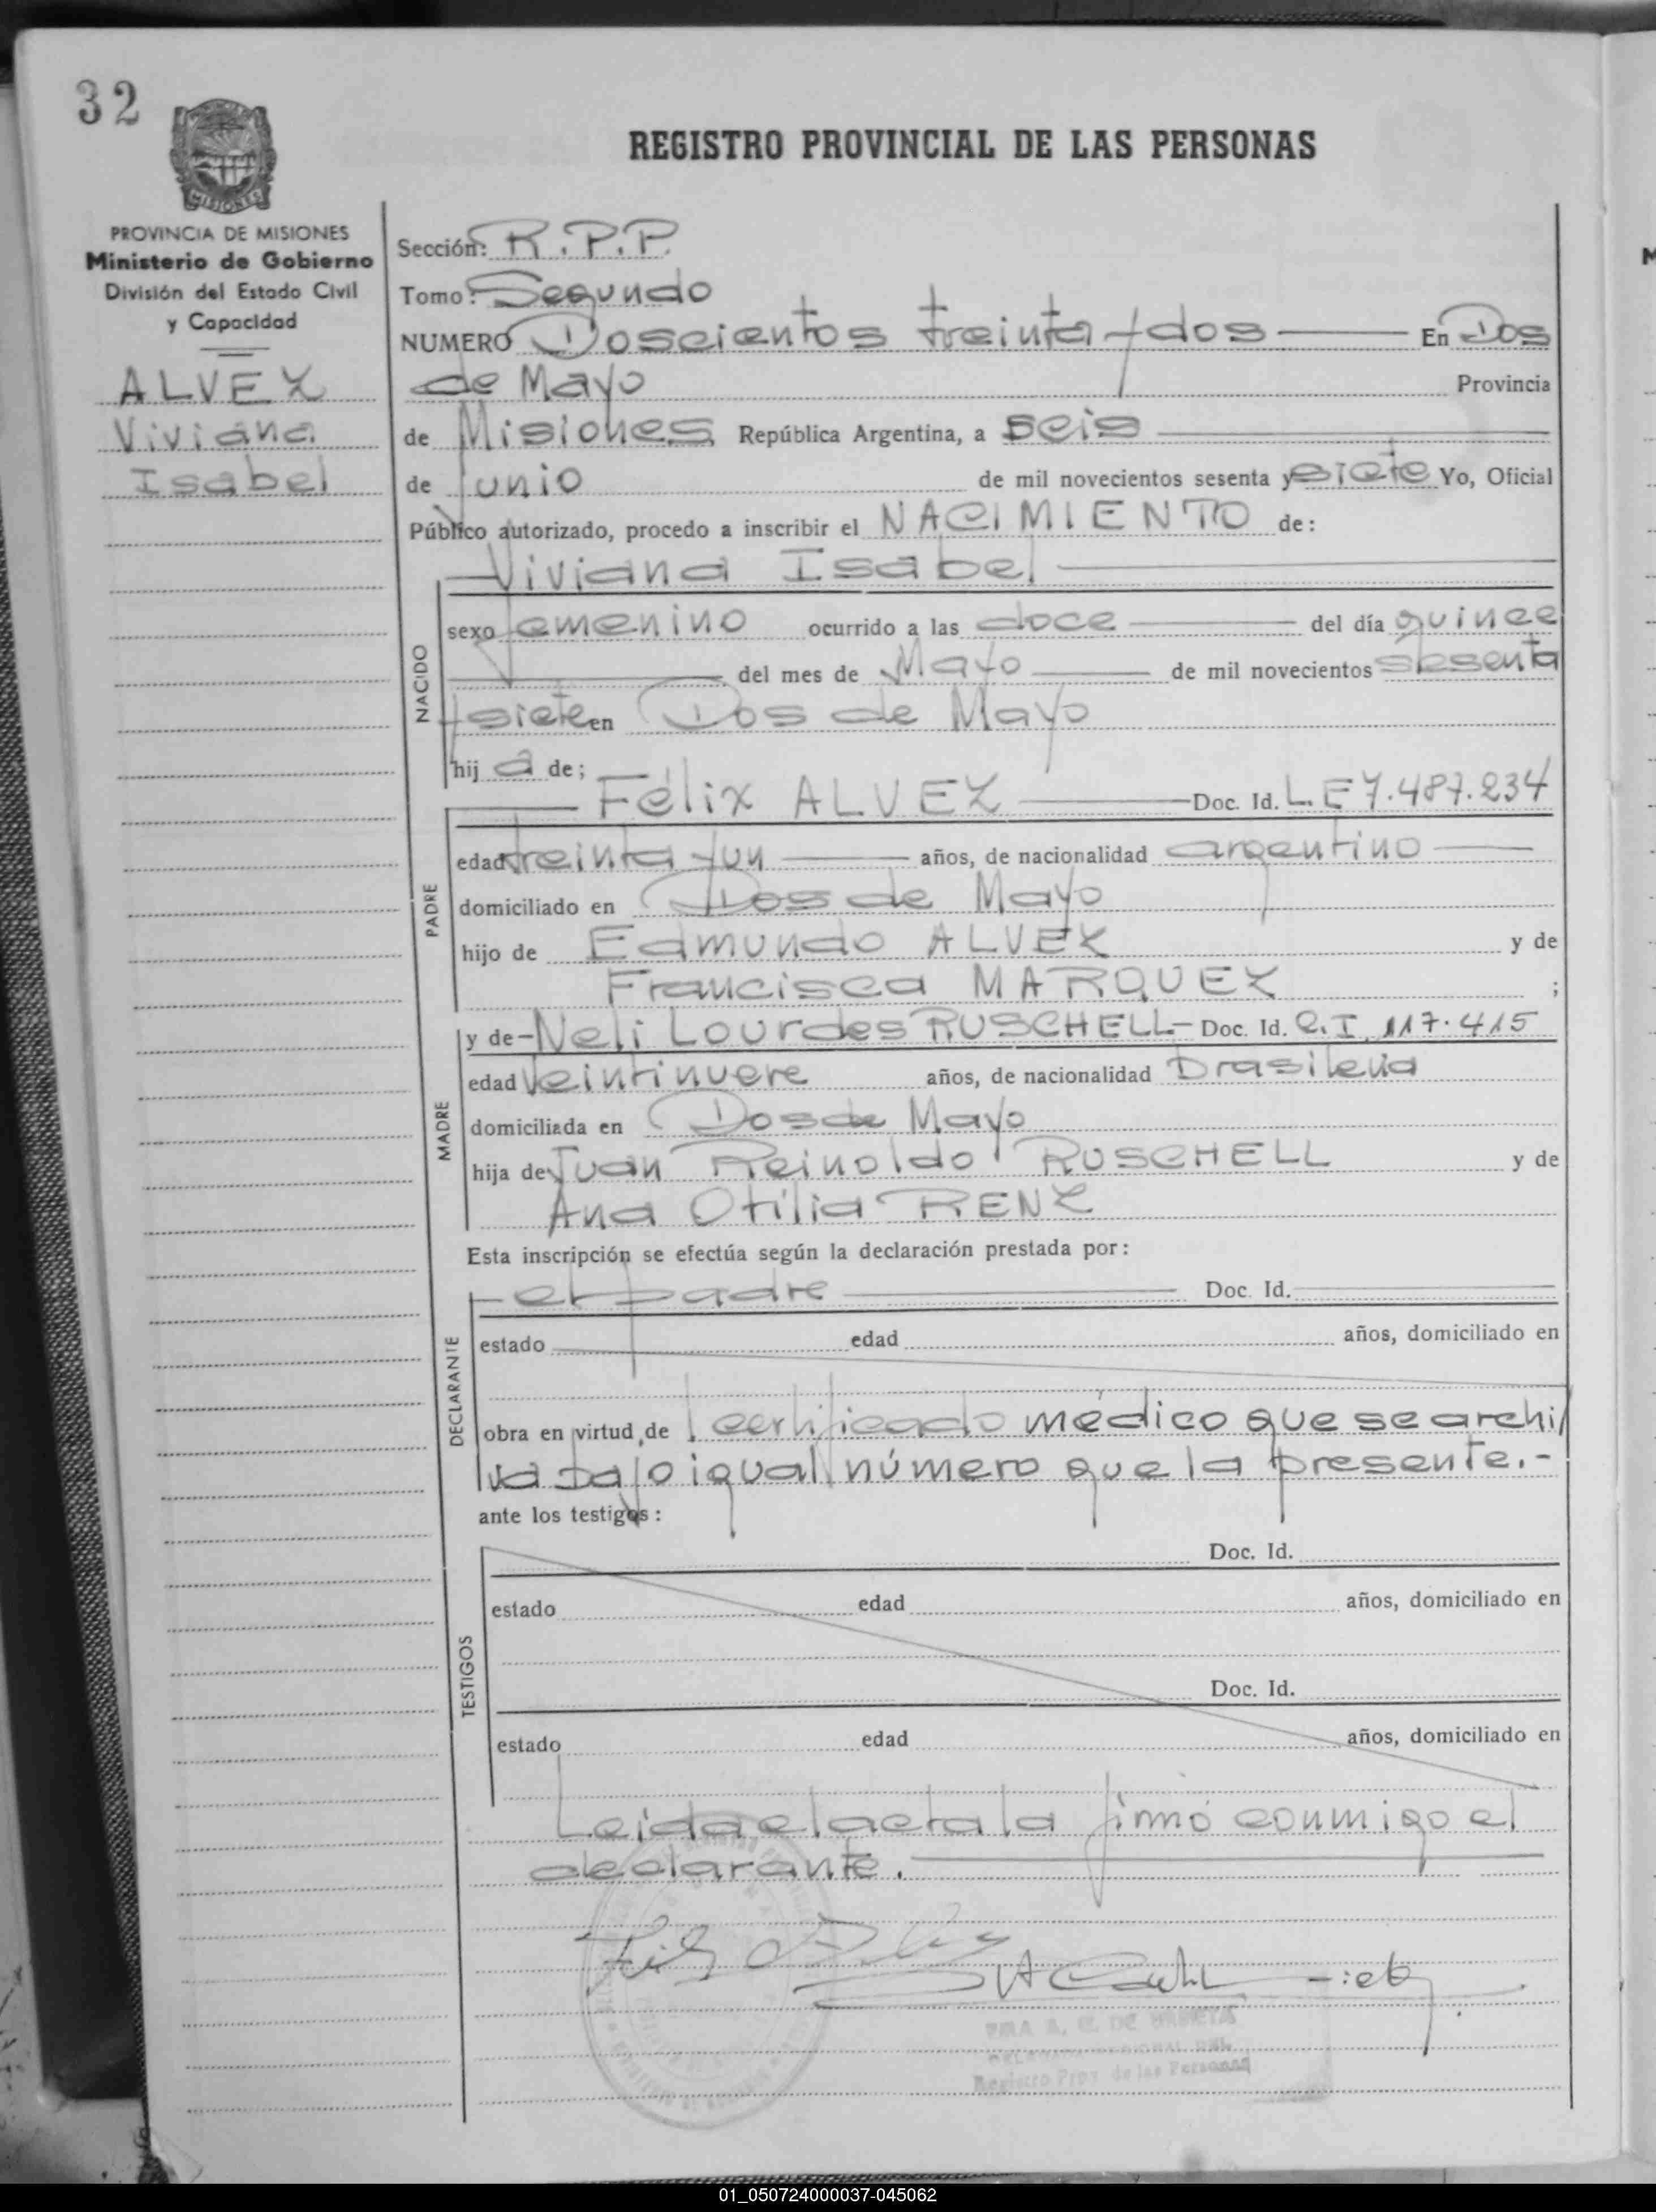 32
REGISTRO PROVINCIAL DE LAS PERSONAS
MISIONES
PROVINCIA DE MISIONES
Ministerio de Gobierno
División del Estado Civil
y Capacidad
ALVEZ
Viviana
Isabel
Sección: R.P.P.
Tomo: Segundo
NUMERO Doscientos treinta y dos En Dos
de Mayo Provincia
de Misiones República Argentina, a seis
de junio de mil novecientos sesenta y siete Yo, Oficial
Público autorizado, procedo a inscribir el NACIMIENTO de:
Viviana Isabel
NACIDO
sexo femenino ocurrido a las doce del día quince
del mes de Mayo de mil novecientos sesenta
y siete en Dos de Mayo
hij a de;
PADRE
Félix ALVEZ Doc. Id. L.E 7.487.234
edad treinta y un años, de nacionalidad argentino
domiciliado en Dos de Mayo
hijo de Edmundo ALVEZ y de
Francisca MARQUEZ ;
MADRE
y de Neli Lourdes RUSCHELL Doc. Id. C.I. 117.415
edad veintinueve años, de nacionalidad brasileña
domiciliada en Dos de Mayo
hija de Juan Reinoldo RUSCHELL y de
Ana Otilia RENZ
Esta inscripción se efectúa según la declaración prestada por:
DECLARANTE
el padre Doc. Id.
estado edad años, domiciliado en
obra en virtud de certificado médico que se archi
va bajo igual número que la presente.-
ante los testigos:
TESTIGOS
Doc. Id.
estado edad años, domiciliado en
Doc. Id.
estado edad años, domiciliado en
Leida el acta la firmó conmigo el
declarante.
Registro Prov. de las Personas
01_050724000037-045062